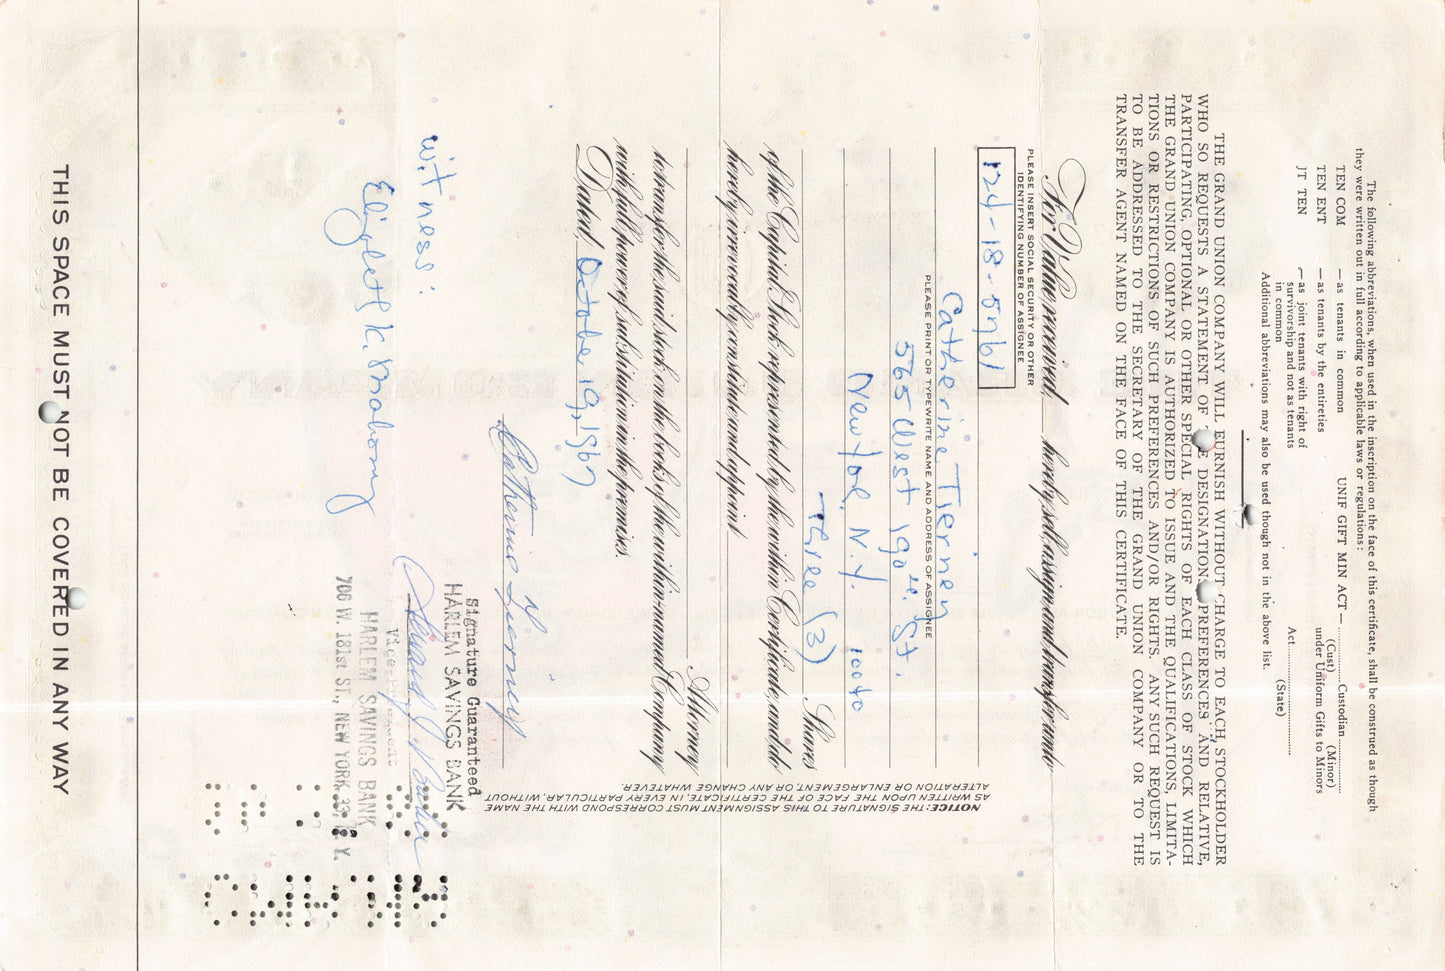 The following abbreviations, when used in the inscription on the face of this certificate, shall be construed as though
they were written out in full according to applicable laws or regulations:
TEN COM — as tenants in common UNIF GIFT MIN ACT — .......... Custodian ..........
(Cust) (Minor)
TEN ENT — as tenants by the entireties under Uniform Gifts to Minors
JT TEN — as joint tenants with right of Act..............................
survivorship and not as tenants (State)
in common
Additional abbreviations may also be used though not in the above list.
THE GRAND UNION COMPANY WILL FURNISH WITHOUT CHARGE TO EACH STOCKHOLDER
WHO SO REQUESTS A STATEMENT OF DESIGNATION, PREFERENCES AND RELATIVE,
PARTICIPATING, OPTIONAL OR OTHER SPECIAL RIGHTS OF EACH CLASS OF STOCK WHICH
THE GRAND UNION COMPANY IS AUTHORIZED TO ISSUE AND THE QUALIFICATIONS, LIMITA-
TIONS OR RESTRICTIONS OF SUCH PREFERENCES AND/OR RIGHTS. ANY SUCH REQUEST IS
TO BE ADDRESSED TO THE SECRETARY OF THE GRAND UNION COMPANY OR TO THE
TRANSFER AGENT NAMED ON THE FACE OF THIS CERTIFICATE.
For Value received, hereby sell, assign and transfer unto
PLEASE INSERT SOCIAL SECURITY OR OTHER
IDENTIFYING NUMBER OF ASSIGNEE
124-18-5761
Catherine Tierney
PLEASE PRINT OR TYPEWRITE NAME AND ADDRESS OF ASSIGNEE
565 West 190th St.
New York, N.Y. 10040
Three (3) Shares
of the Capital Stock represented by the within Certificate, and do
hereby irrevocably constitute and appoint
Attorney
to transfer the said stock on the books of the within-named Company
with full power of substitution in the premises.
Dated, October 19, 1967
Catherine Tierney
NOTICE: THE SIGNATURE TO THIS ASSIGNMENT MUST CORRESPOND WITH THE NAME
AS WRITTEN UPON THE FACE OF THE CERTIFICATE, IN EVERY PARTICULAR, WITHOUT
ALTERATION OR ENLARGEMENT, OR ANY CHANGE WHATEVER.
Signature Guaranteed
HARLEM SAVINGS BANK
Vice President
HARLEM SAVINGS BANK
706 W. 181st ST., NEW YORK 33, N.Y.
Witness:
Elizabeth K. Mahony
THIS SPACE MUST NOT BE COVERED IN ANY WAY